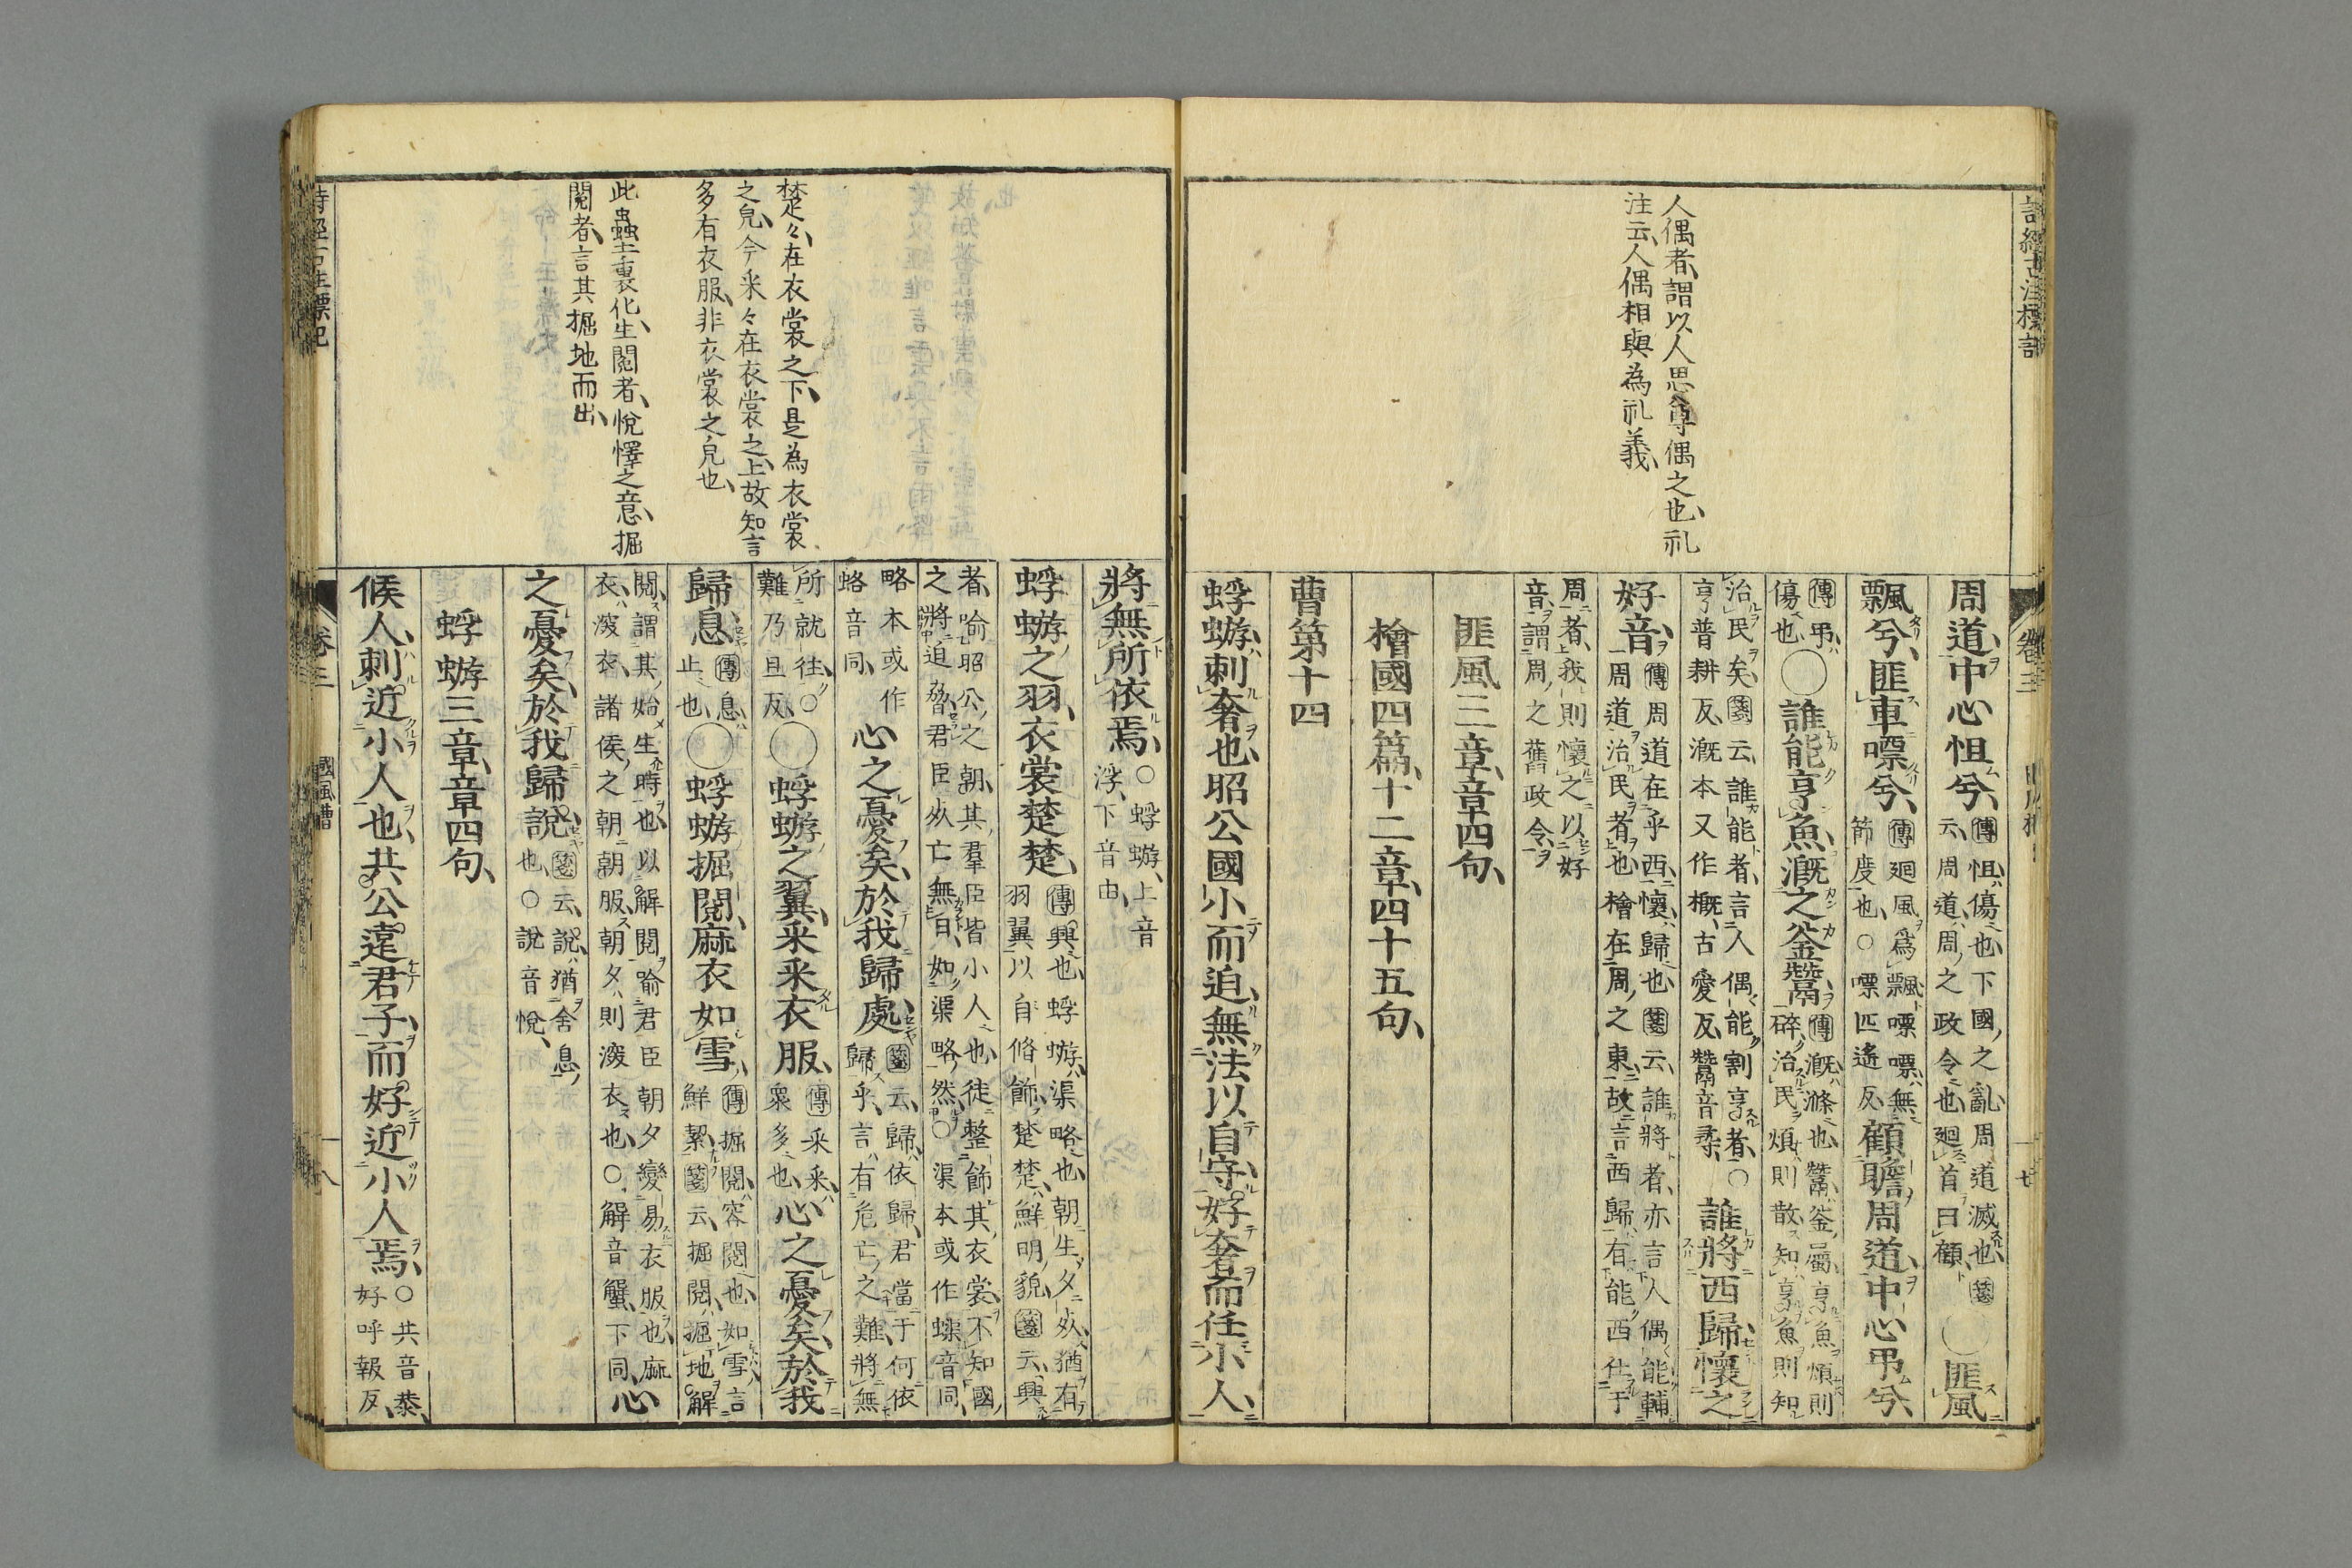 詩經古注標記
人偶者、謂以人思尊偶之也、礼
注云、人偶相與為礼義、
周道、中心怛兮、傳怛、傷也、下國之亂周道滅也箋云、周道、周之政令也、廻首曰顧、〇匪風
飄兮、匪車嘌兮、傳廻風為飄、嘌嘌、無節度也、○嘌匹遙反、顧瞻周道、中心弔兮、
傳弔、傷也〇誰能亨魚、漑之釜鬵、傳漑、滌也、鬵、釜屬、亨魚煩則碎、治民煩則散、知亨魚則知
治民矣、箋云、誰能者、言人偶能割亨者、○亨普耕反、漑本又作摡、古愛反、鬵音尋、誰將西歸、懷之
好音、傳周道在乎西、懷、歸也、箋云、誰將者、亦言人偶能輔周道治民者也、檜在周之東、故言西歸、有能西仕于
周者、我則懷之以好音、謂周之舊政令、
匪風三章、章四句、
檜國四篇、十二章、四十五句、
曹第十四
蜉蝣、刺奢也、昭公國小而迫、無法以自守、好奢而任小人、
卷三
十七
楚々、在衣裳之下、是為衣裳
之皃、今采々在衣裳之上、故知言
多有衣服、非衣裳之皃也、
此蟲土裏化生、閱者、悅懌之意、掘
閱者、言其掘地而出、
將無所依焉、○蜉蝣、上音浮、下音由、
蜉蝣之羽、衣裳楚楚、傳興也、蜉蝣、渠略也、朝生夕死、猶有羽翼以自脩飾、楚楚、鮮明貌、箋云、興
者、喻昭公之朝、其羣臣皆小人也、徒整飾其衣裳、不知國之將迫脅、君臣死亡無日、如渠略然、○渠本或作蟝、音同、
略本或作蛒音同、心之憂矣、於我歸處、箋云、歸、依歸、君當于何依歸乎、言有危亡之難、將無
所就往、○難乃旦反、〇蜉蝣之翼、采采衣服、傳采采、衆多也、心之憂矣、於我
歸息、傳息、止也、〇蜉蝣掘閱、麻衣如雪、傳掘閱、容閱也、如雪、言鮮絜、箋云、掘閱、掘地解
閱、謂其始生時也、以解閱喻君臣朝夕變易衣服也、麻衣、深衣、諸侯之朝朝服、朝夕則深衣也、○解音蟹、下同、心
之憂矣、於我歸說、箋云、說、猶舍息也、○說音悅、
蜉蝣三章、章四句、
候人、刺近小人也、共公遠君子而好近小人焉、○共音恭、好呼報反、
卷三
國風曹
十八